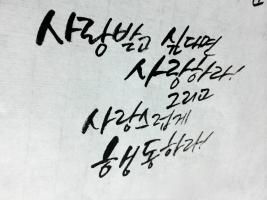 사랑받고 싶다면
사랑하라!
그리고
사랑스럽게
행동하라!